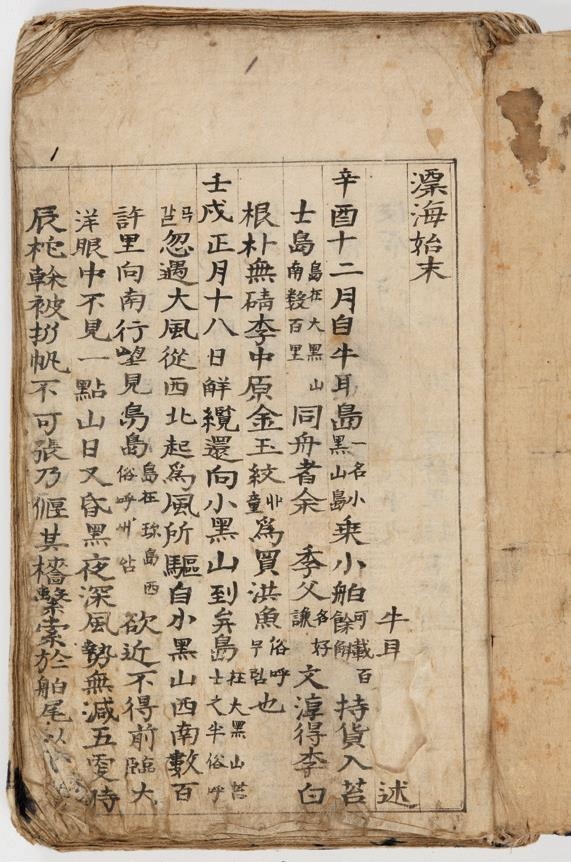 漂海始末
牛耳 述
辛酉十二月自牛耳島一名小黑山島乘小舶可載百餘斛持貨入苔
士島島在大黑山南數百里同舟者余 季父名好謙文淳得李白
根朴無碃李中原金玉紋丱童爲買洪魚俗呼무럼也
壬戌正月十八日解纜還向小黑山到弁島在大黑山苔士之半俗呼
忽遇大風從西北起爲風所驅自小黑山西南數百
許里向南行望見鳥島島在珍島西俗呼欲近不得前臨大
洋眼中不見一點山日又昏黑夜深風勢無減五更時
辰柁榦被折帆不可張乃偃其檣繫索於舶尾以